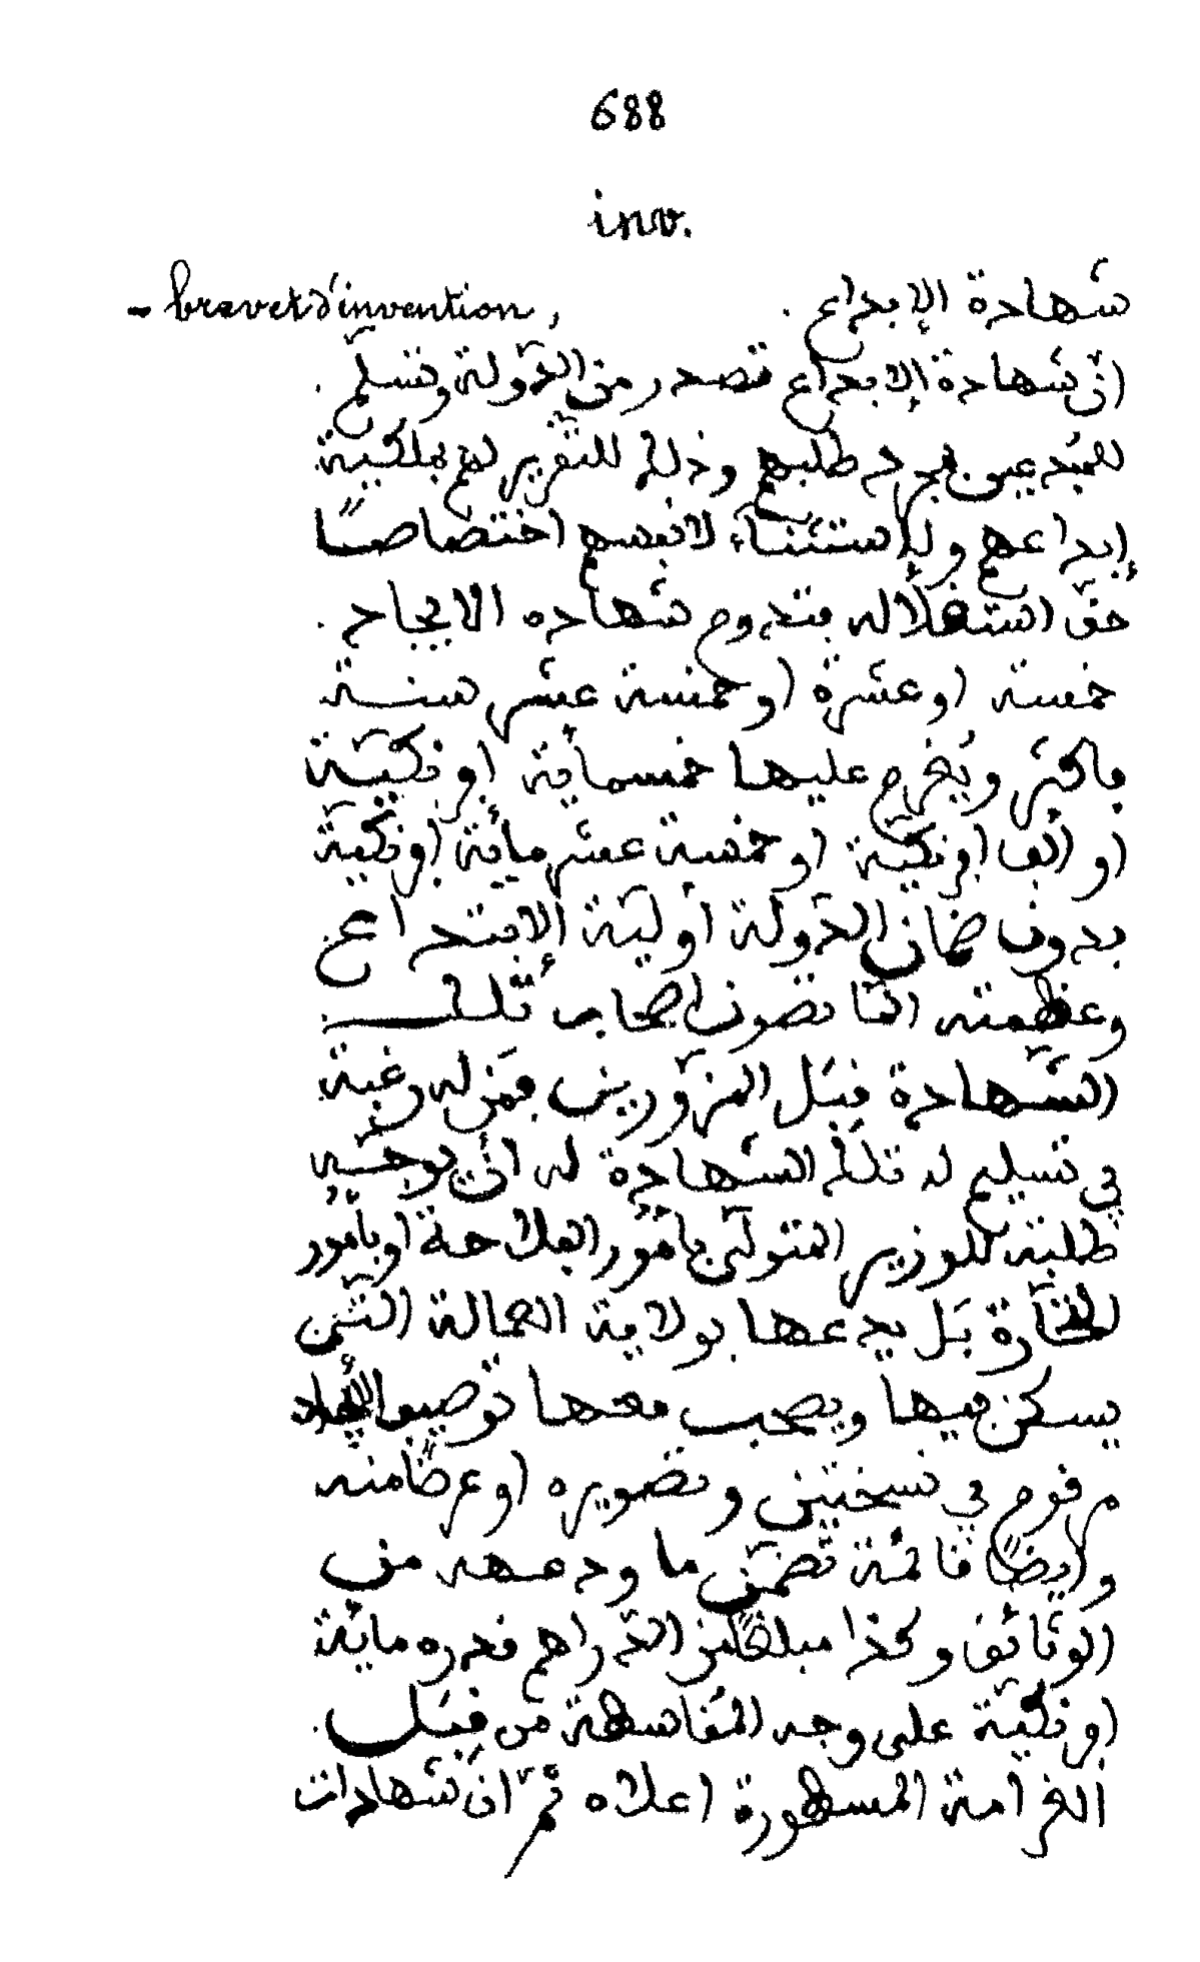 688
inv.
- brevet d'invention, شهادة الإبداع .
انّ شهادة الإبداع تصدر من الدّولة وتسلّم .
للمبدعين بمجرد طلبهم وذلك للتقرير لهم بملكيّة
إبداعهم ولاستثناء لانفسهم اختصاصًا
حقّ استغلاله فتدوم شهاده الايجاد .
خمسة او عشرة او خمسة عشر سنة
فاكثر ويُغرم عليها خمسماية افرنكيّة
او ألف افرنكيّة او خمسة عشر مائة افرنكيّة
بدون ضمان الدّولة أوليّة الإبتداع
وعظمته انّما تصون اصحاب تلك
الشّهادة قبَل المزوّرين فمَن له رغبة
في تسليم له تلك الشهادة له أن يوجّه
طلبة للوزير المتولّي بأمور الفلاحة او بأمور
التّجارة بَل يدعها بولاية العمالة التّي
يسكن فيها ويصحب معها توصيف الإيجاد
مرقوم في نسختين وتصويره او عرضًا منه
وايضًا قائمة تضمّن ما ودعه من
الوثائق وكذا مبلغًا من الدّراهم قدره مائة
افرنكيّة على وجه المُقاسطة من قبَل .
الغرامة المسطورة اعلاه ثمّ انّ شهادات